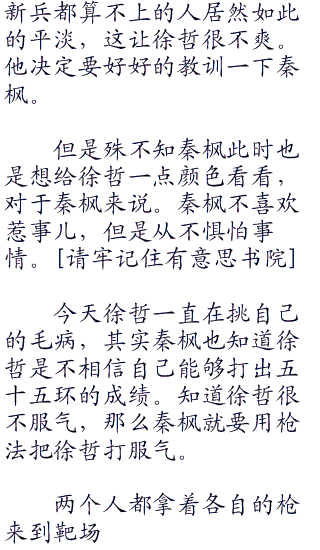 新兵都算不上的人居然如此
的平淡，这让徐哲很不爽。
他决定要好好的教训一下秦
枫。
但是殊不知秦枫此时也
是想给徐哲一点颜色看看，
对于秦枫来说。秦枫不喜欢
惹事儿，但是从不惧怕事
情。[请牢记住有意思书院]
今天徐哲一直在挑自己
的毛病，其实秦枫也知道徐
哲是不相信自己能够打出五
十五环的成绩。知道徐哲很
不服气，那么秦枫就要用枪
法把徐哲打服气。
两个人都拿着各自的枪
来到靶场